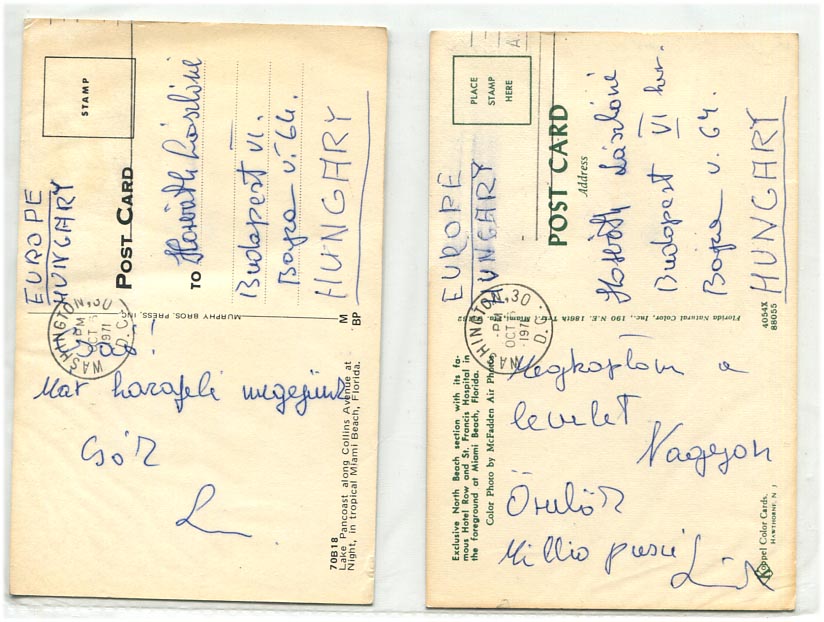 STAMP
POST CARD
EUROPE
HUNGARY
TO Horváth Lászlóné
Budapest VI.
Bajza u. 64.
HUNGARY
MURPHY BROS. PRESS, INC.
M
BP
WASHINGTON, D.C. 30
PM
OCT
1971
haza
Csók
70B18
Lake Pancoast along Collins Avenue at
Night, in tropical Miami Beach, Florida.
PLACE
STAMP
HERE
POST CARD
Address
EUROPE
HUNGARY
Horváth Lászlóné
Budapest VI ker.
Bajza u. 64.
HUNGARY
Florida Natural Color, Inc., 190 N.E. 186th Terr., Miami, Fla.
4054X
88055
WASHINGTON, D.C. 30
PM
OCT
1971
Exclusive North Beach section with its fa-
mous Hotel Row and St. Francis Hospital in
the foreground at Miami Beach, Florida.
Color Photo by McFadden Air Photos
Megkaptam a
levelet
Nagyon
Örülök
Millio puszi
Koppel Color Cards.
HAWTHORNE, N J